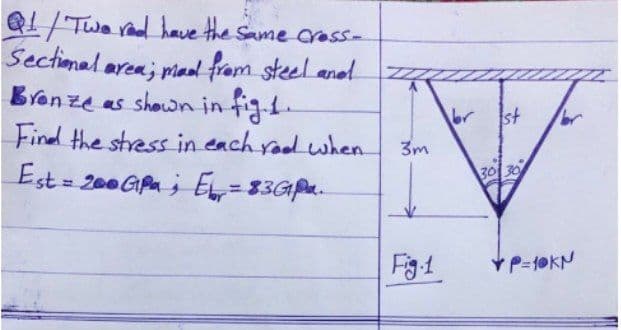 Q1/ Two rod have the Same cross-
Sectional area; mad from steel and
Bronze as shown in fig.1.
Find the stress in each rod when
Est = 200 GPa ; Ebr = 83GPa.
br st br
3m
30° 30°
Fig.1 P=10KN